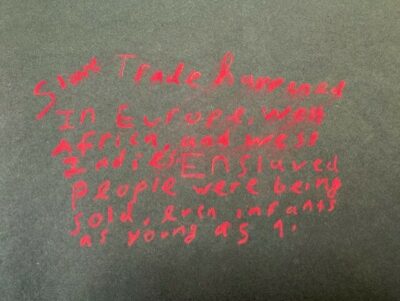 Slave Trade happened
In Europe, West
Africa, and west
Indies Enslaved
people were being
sold, even infants
as young as 1.